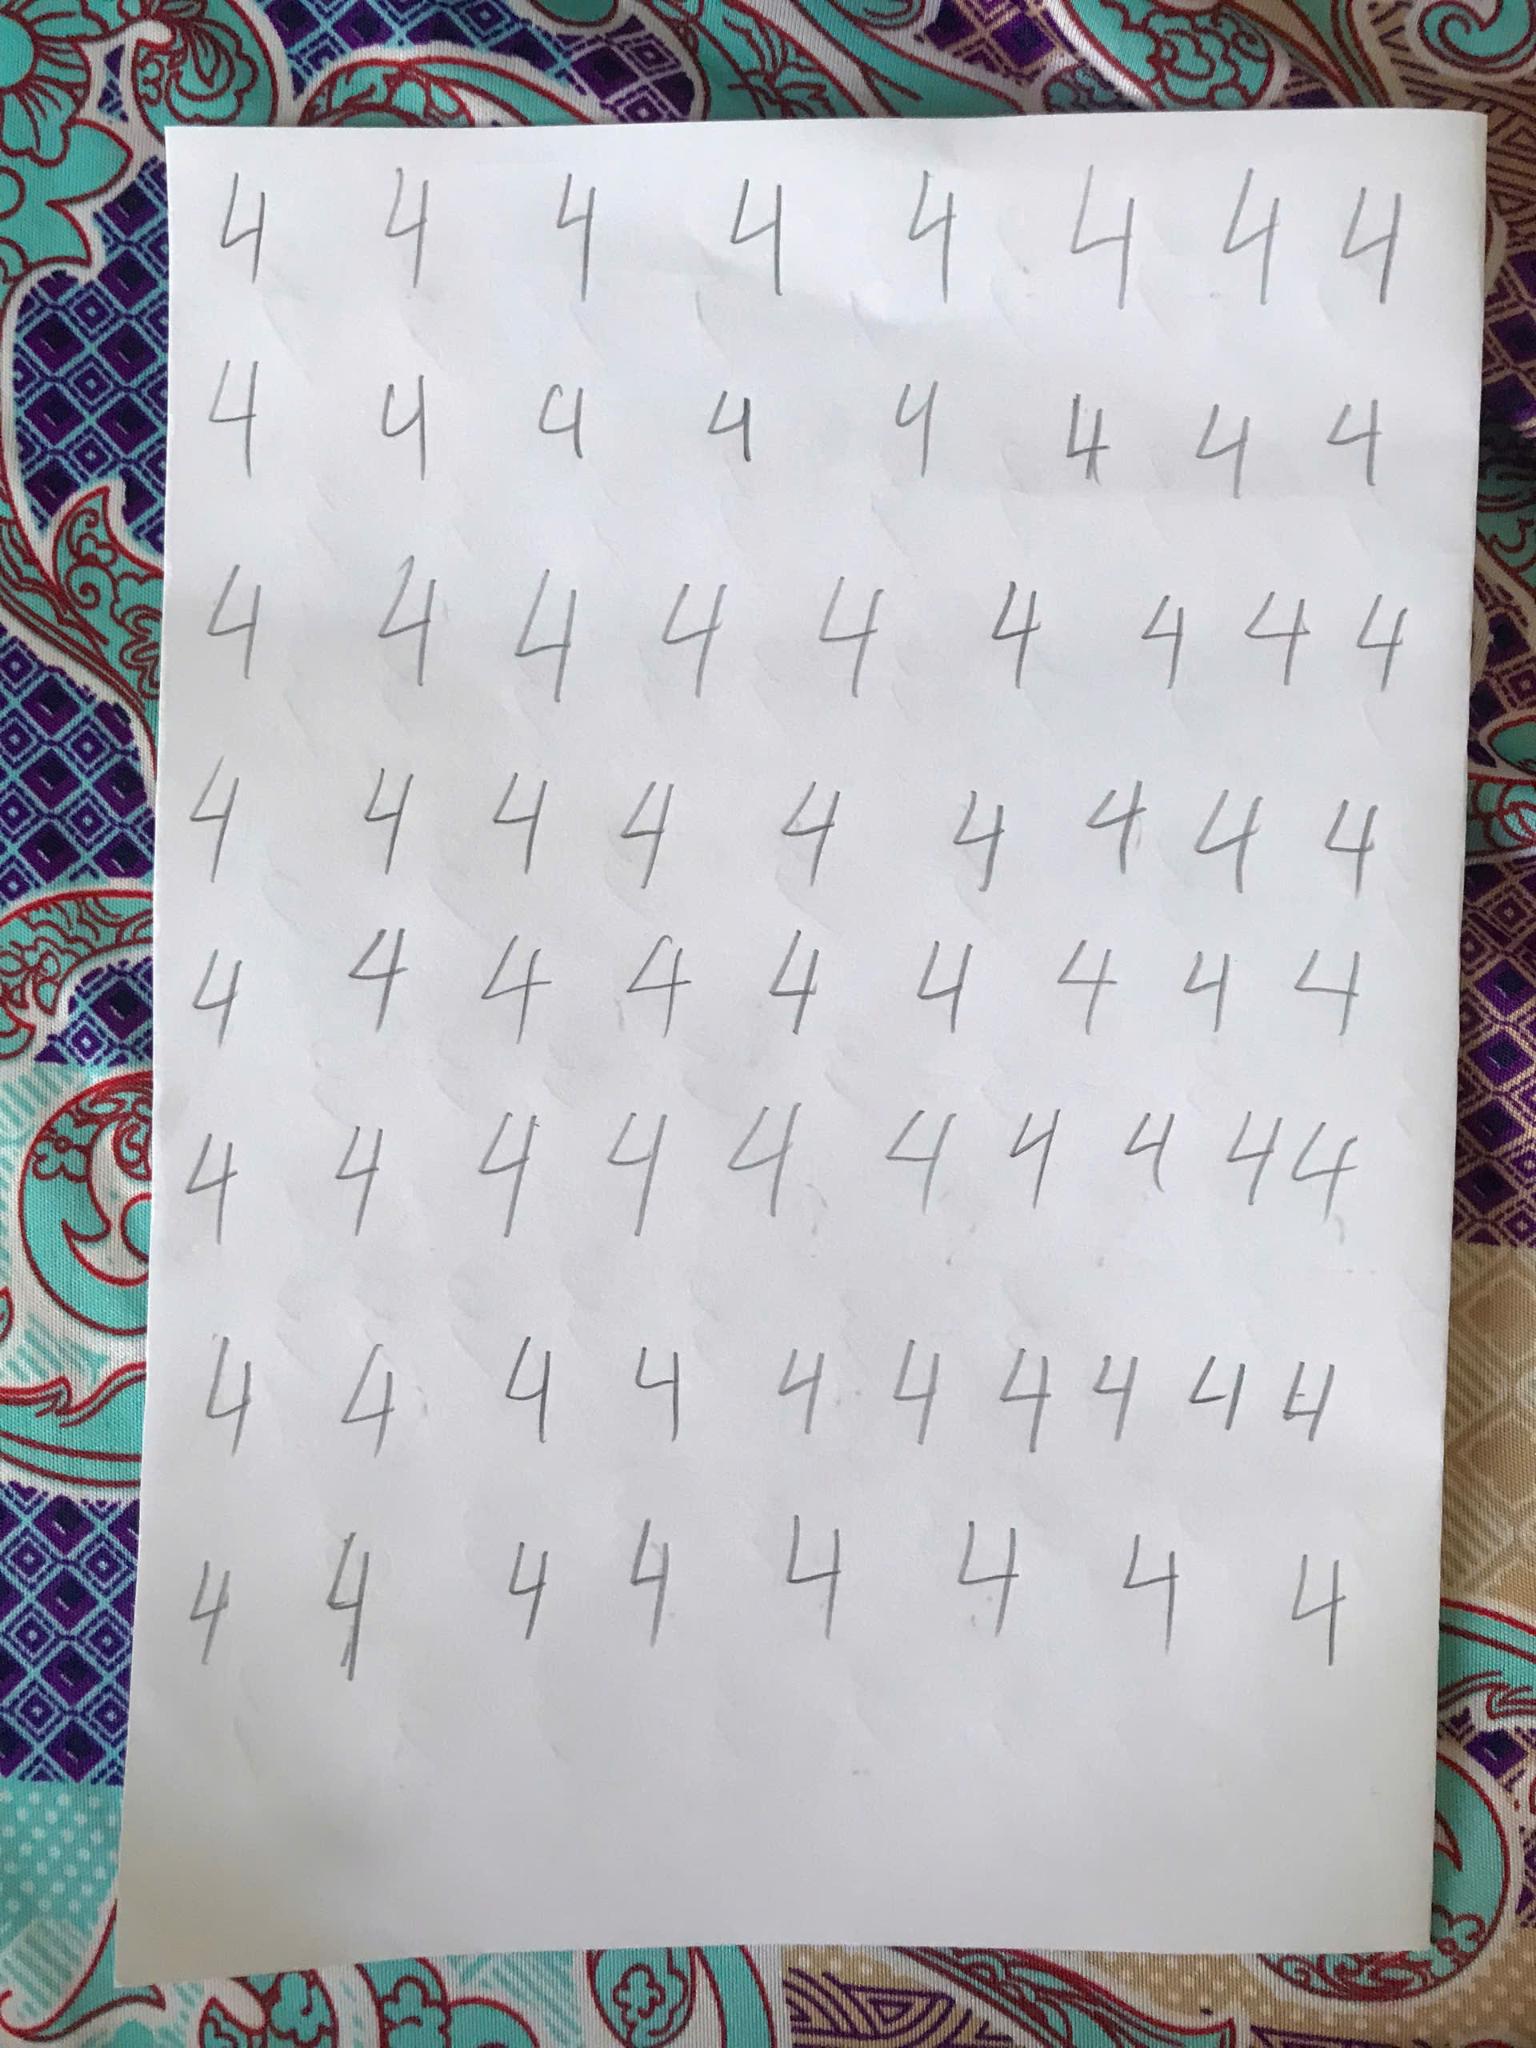 4 4 4 4 4 4 4 4
4 4 4 4 4 4 4 4
4 4 4 4 4 4 4 4 4
4 4 4 4 4 4 4 4 4
4 4 4 4 4 4 4 4 4
4 4 4 4 4 4 4 4 4 4
4 4 4 4 4 4 4 4 4 4
4 4 4 4 4 4 4 4